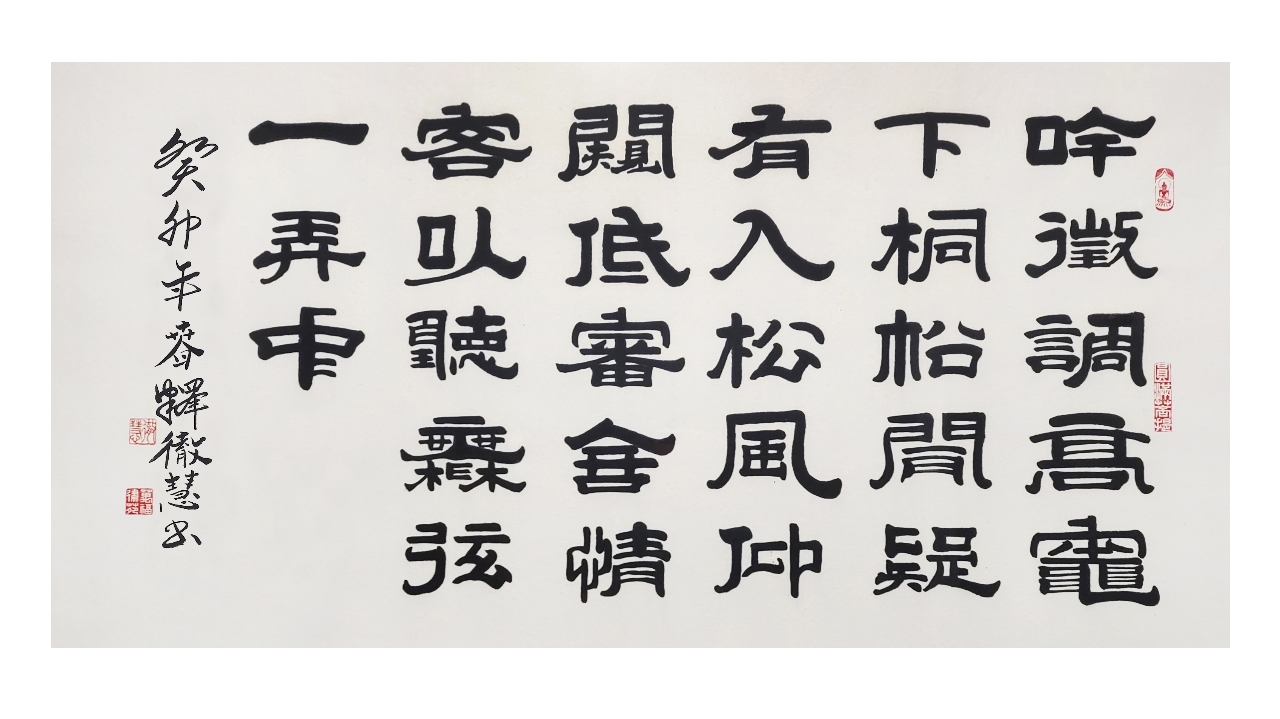 吟徵調高竈
下桐松間疑
有入松風仰
闚低審含情
客以聽無弦
一弄中
癸卯年春釋徹慧书